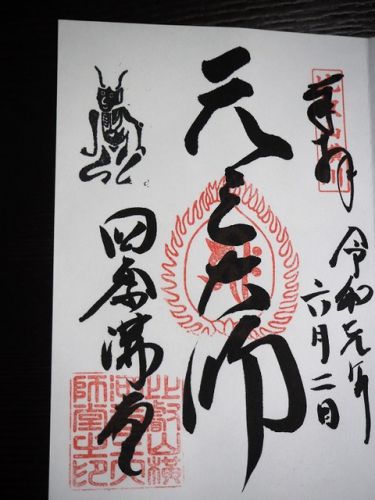 奉拝
令和元年
六月二日
元三大師
四季講堂
比叡山横
河元三大
師堂之印